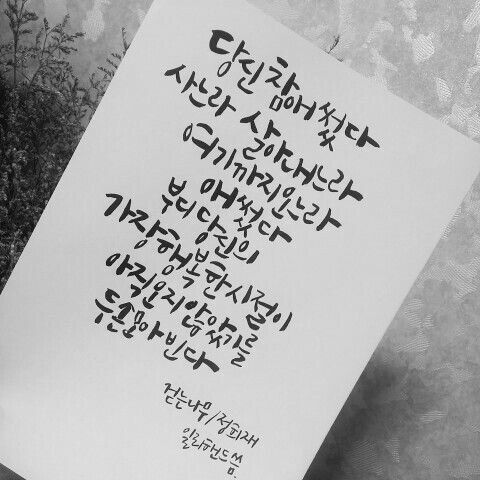 당신 참 애썼다
사느라 살아내느라
여기까지 오느라
애썼다
부디 당신의
가장 행복한 시절이
아직 오지 않았기를
두 손 모아 빈다
걷는나무/정희재
일리핸드 씀.